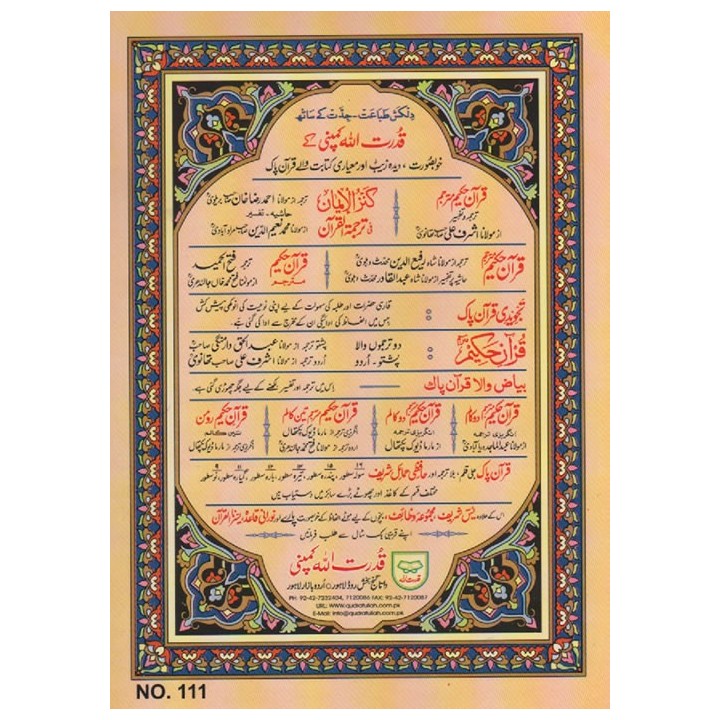 دلکش طباعت - جدّت کے ساتھ
قدرت اللہ کمپنی کے
خوبصورت، دیدہ زیب اور معیاری کتابت والے قرآن پاک
قرآن حکیم مترجم
ترجمہ و تفسیر
از مولانا اشرف علی تھانویؒ
کنز الایمان
فی ترجمۃ القرآن
ترجمہ از مولانا احمد رضا خان بریلویؒ
حاشیہ - تفسیر
از مولانا محمد نعیم الدین مراد آبادیؒ
قرآن حکیم مترجم
ترجمہ از مولانا شاہ رفیع الدین محدث دہلویؒ
حاشیہ پر تفسیر از مولانا شاہ عبدالقادر محدث دہلویؒ
قرآن حکیم
مترجم
ترجمہ فتح الحمید
از مولانا فتح محمد خاں جالندھریؒ
تجویدی قرآن پاک :
قاری حضرات اور طلبہ کی سہولت کے لیے اپنی نوعیت کی انوکھی پیش کش
جس میں الفاظ کی ادائیگی ان کے مخرج سے ادا کی گئی ہے۔
قرآن حکیم مترجم :
دو ترجموں والا
پشتو - اُردو
پشتو ترجمہ از مولانا عبدالحق صاحب
اُردو ترجمہ از مولانا اشرف علی صاحب تھانویؒ
بیاض والا قرآن پاک
اس میں ترجمہ اور تفسیر لکھنے کے لیے جگہ چھوڑی گئی ہے۔
قرآن حکیم مترجم دو کالم
انگریزی ترجمہ
از مولانا عبدالماجد دریا آبادیؒ
قرآن حکیم مترجم دو کالم
انگریزی ترجمہ
از مارما ڈیوک پکتھال
قرآن حکیم مترجم تین کالم
انگریزی از مارما ڈیوک پکتھال
اُردو ترجمہ از مولانا فتح محمد جالندھریؒ
قرآن حکیم رومن
تین کالم
انگریزی ترجمہ از مارما ڈیوک پکتھال
قرآن پاک جلی قلم، بلا ترجمہ اور حافظی حمائل شریف ۱۶ سولہ سطور، ۱۵ پندرہ سطور، ۱۳ تیرہ سطور، ۱۲ بارہ سطور، ۱۱ گیارہ سطور، ۹ نو سطور
مختلف قسم کے کاغذ اور چھوٹے بڑے سائز میں دستیاب ہیں
اس کے علاوہ یٰسین شریف، مجموعہ وظائف، بچوں کے لیے موٹے الفاظ کے خوبصورت پارے اور نورانی قاعدہ، یسرنا القرآن
اپنے قریبی بک سٹال سے طلب فرمائیں
قدرت اللہ کمپنی
داتا گنج بخش روڈ لاہور ○ اُردو بازار لاہور
PH: 92-42-7232404, 7120086 FAX: 92-42-7120087
URL: WWW.qudratullah.com.pk
E-Mail: info@qudratullah.com.pk
NO. 111